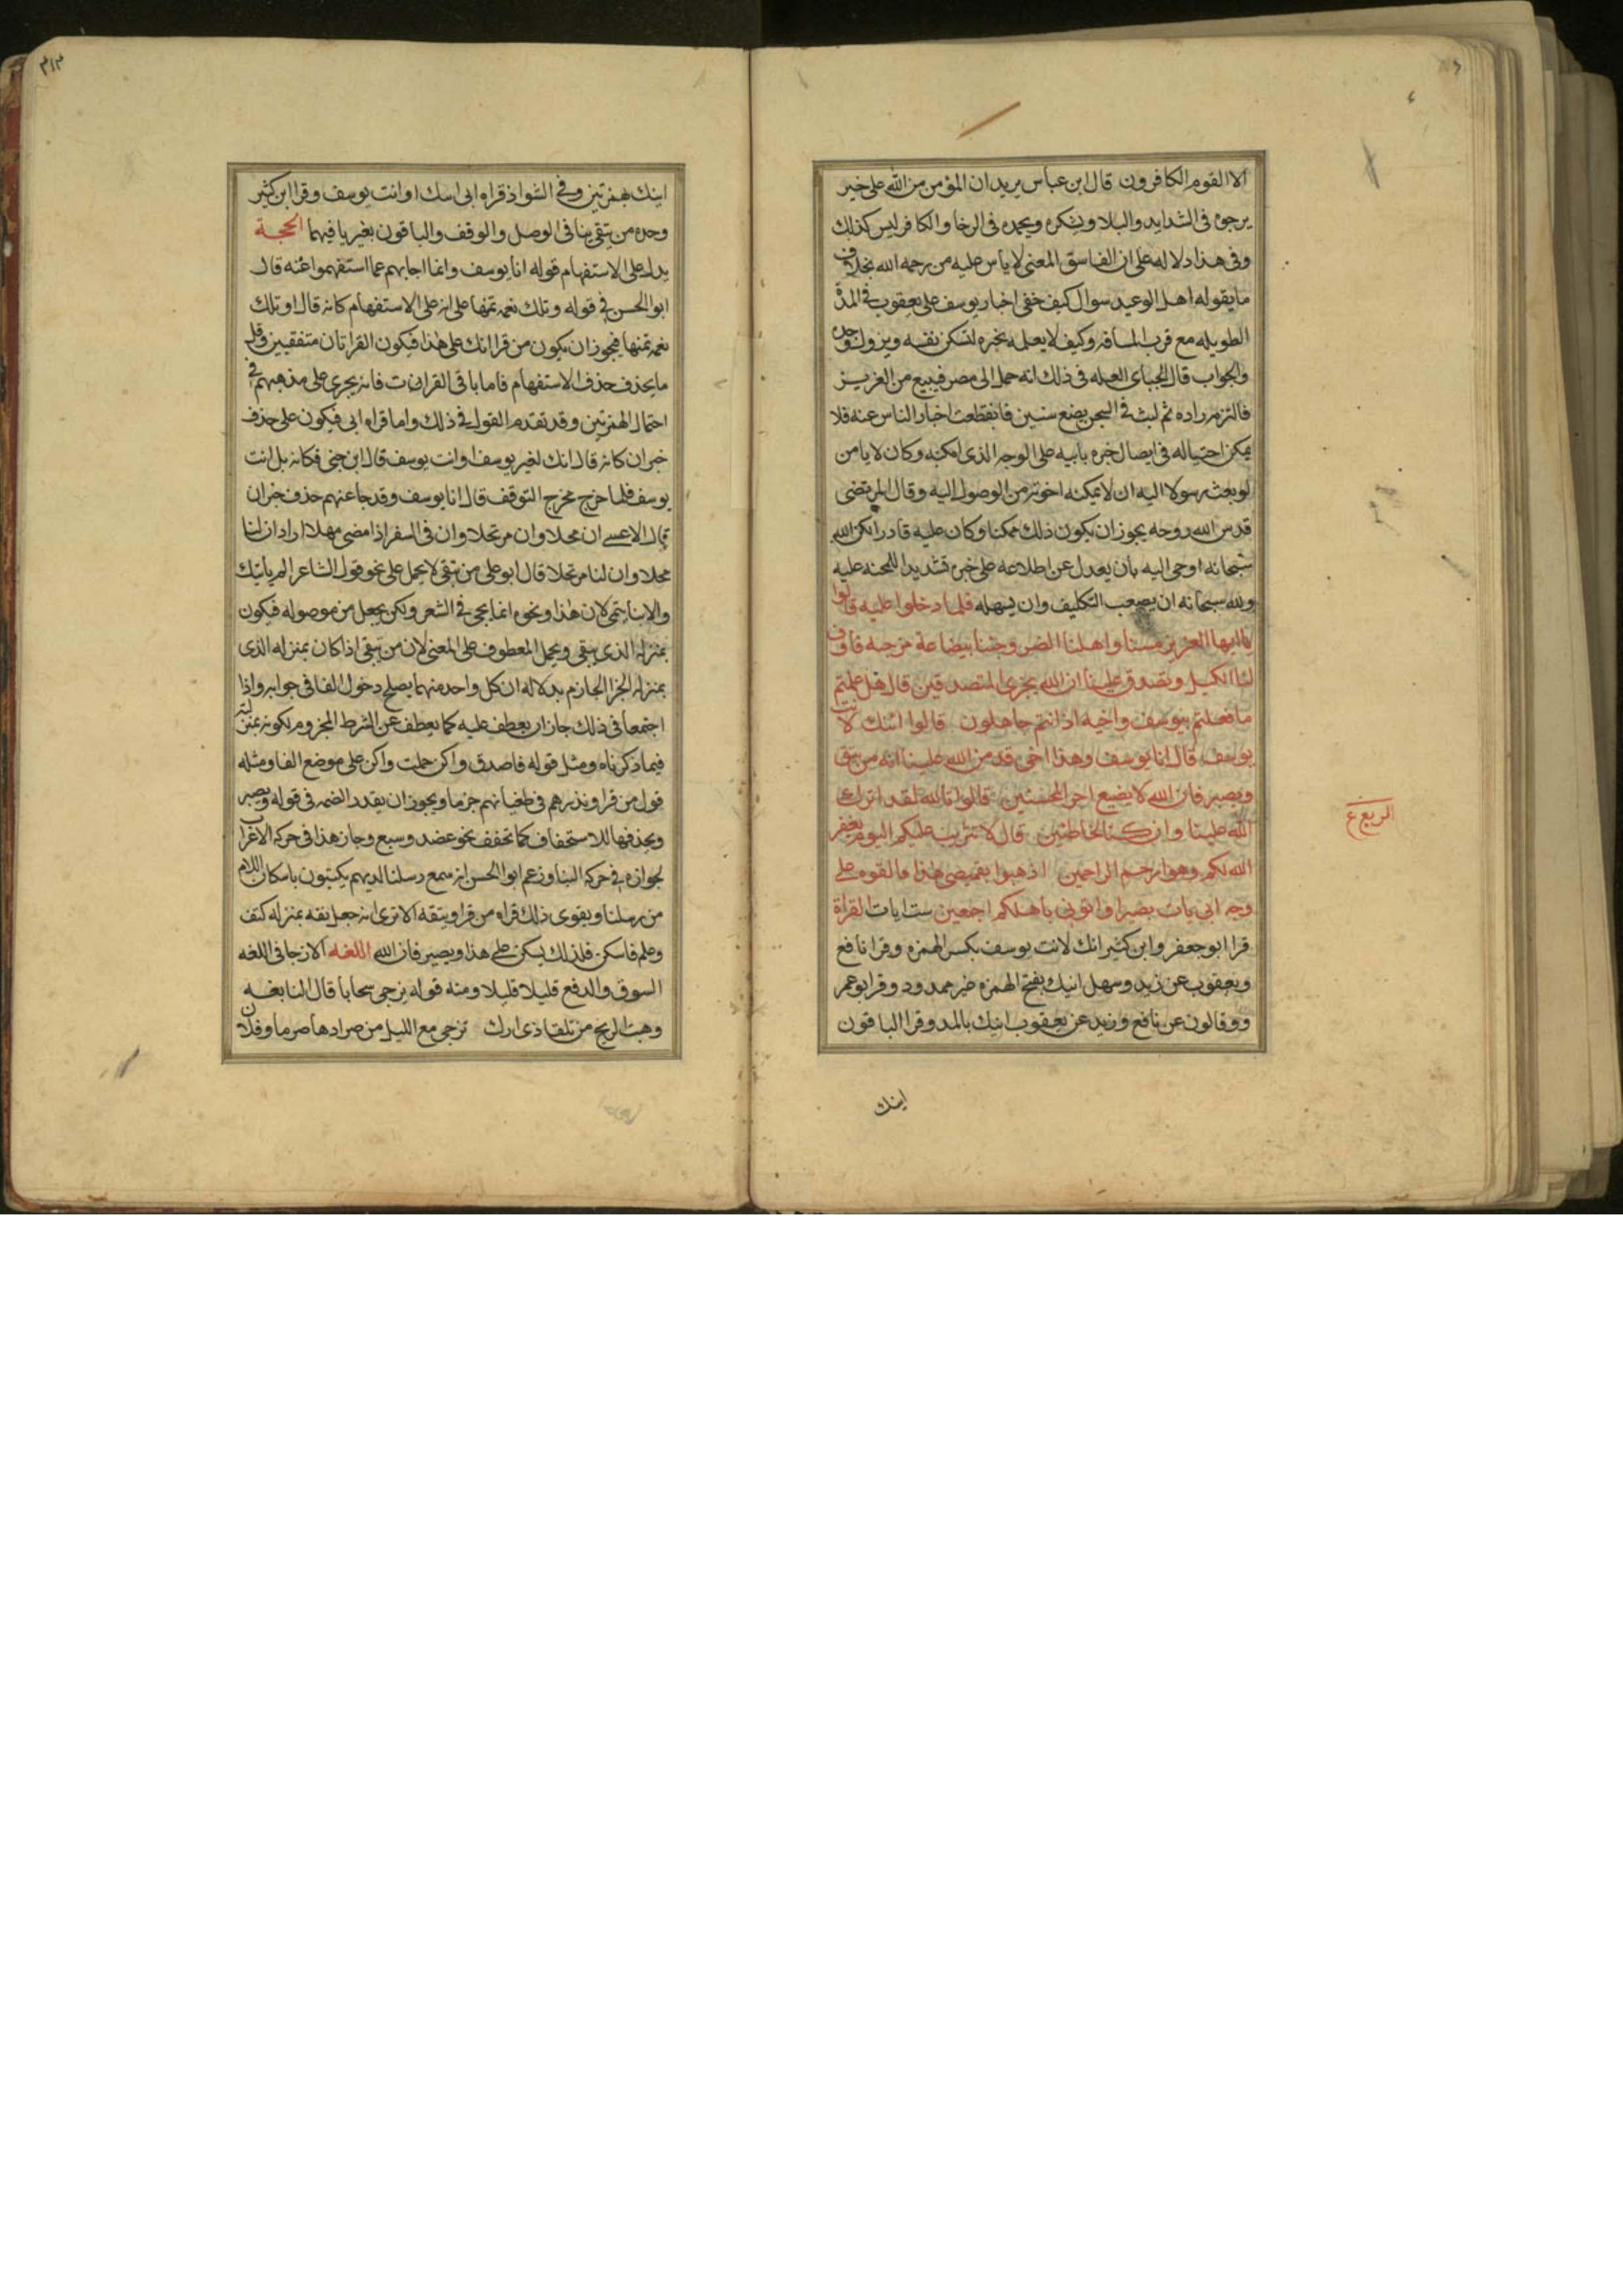 الا القوم الكافرون قال ابن عباس يريد ان المؤمن من الله على خير
يرجوه فى الشدايد والبلا ويشكره ويحمده فى الرخا والكافر ليس كذلك
وفى هذا دلاله على ان الفاسق المعنى لا يأس عليه من رحمه الله بخلاف
ما يقوله اهل الوعيد سوال كيف خفى اخبار يوسف على يعقوب فى المدة
الطويله مع قرب المسافه وكيف لا يعلمه بخبره لتسكن نفسه ويزول وجده
والجواب قال الجبائى العله فى ذلك انه حمل الى مصر فبيع من العزيز
فالزمه داره ثم لبث فى السجن بضع سنين فانقطعت اخبار الناس عنه فلا
يمكن احتياله فى ايصال خبره بابيه على الوجه الذى امكنه وكان لا يامن
لو بعث رسولا اليه ان لا يمكنه اخوته من الوصول اليه وقال المرتضى
قدس الله روحه يجوز ان يكون ذلك ممكنا وكان عليه قادرا لكن الله
سبحانه اوحى اليه بأن يعدل عن اطلاعه على خبره تشديدا للمحنه عليه
ولله سبحانه ان يصعب التكليف وان يسهله فلما دخلوا عليه قالوا
يا ايها العزيز مسنا واهلنا الضر وجئنا ببضاعة مزجيه فاوف
لنا الكيل وتصدق علينا ان الله يجزى المتصدقين قال هل علمتم
ما فعلتم بيوسف واخيه اذ انتم جاهلون قالوا ائنك لانت
يوسف قال انا يوسف وهذا اخى قد من الله علينا انه من يتق
ويصبر فان الله لا يضيع اجر المحسنين قالوا تالله لقد اثرك
الله علينا وان كنا لخاطئين قال لا تثريب عليكم اليوم يغفر
الله لكم وهو ارحم الراحمين اذهبوا بقميصى هذا فالقوه على
وجه ابى يات بصيرا واتونى باهلكم اجمعين ست ايات القراة
قرا ابو جعفر وابن كثير انك لانت يوسف بكسر الهمزه وقرا نافع
ويعقوب عن زيد وسهل اينك بفتح الهمزه غير ممدود وقرا ابو عمر
و وقالون عن نافع وزيد عن يعقوب اينك بالمد وقرا الباقون
اينك
الربع ع
٣١٣
اينك بهمزتين وفى الشواذ قراه ابى او انت يوسف وقرا ابن كثير
وحده من يتقى بيا فى الوصل والوقف والباقون بغير يا فيهما الحجة
يدل على الاستفهام قوله انا يوسف وانما اجابهم عما استفهموا عنه قال
ابو الحسن فى قوله وتلك نعمه تمنها على انه على الاستفهام كانه قال او تلك
نعمه تمنها فيجوز ان يكون من قرا انك على هذا فيكون القراتان متفقتين وقل
ما يحذف حذف الاستفهام فاما باقى القرات فانه يجرى على مذهبهم فى
احتمال الهمزتين وقد تقدم القول فى ذلك واما قراه ابى فيكون على حذف
خبر ان كانه قال انك لغير يوسف او انت يوسف قال ابن جنى فكانه بل انت
يوسف فلما خرج مخرج التوقف قال انا يوسف وقد جا عنهم حذف خبر ان
قال الاعشى ان محلا وان مرتحلا وان فى السفر اذا مضى مهلا اراد ان لنا
محلا وان لنا مرتحلا قال ابو على من يتقى لا يحمل على نحو قول الشاعر الم ياتيك
والانبا تنمى لان هذا ونحوه انما يجى فى الشعر ولكن يجعل من موصوله فيكون
بمنزله الذى يتقى ويحمل المعطوف على المعنى لان من يتقى اذا كان بمنزله الذى
بمنزله الجزا الجازم بدلاله ان كل واحد منهما يصلح دخول الفا فى جوابه واذا
اجتمعا فى ذلك جاز ان يعطف عليه كما يعطف عن الشرط المجزوم لكونه بمنزلته
فيما ذكرناه ومثل قوله فاصدق واكن حملت واكن على موضع الفا ومثله
قول من قرا ونذرهم فى طغيانهم جزما ويجوز ان يقدر الضمه فى قوله ويصبر
ويحذفها للاستخفاف كما تخفف نحو عضد وسبع وجاز هذا فى حركه الاعراب
لجوازه فى حركه البنا وزعم ابو الحسن انه سمع رسلنا لديهم يكتبون باسكان اللام
من رسلنا ويقوى ذلك قراه من قرا ويتقه الا ترى انه جعل تقه بمنزله كتف
وعلم فاسكن فلذلك يسكن على هذا ويصبر فان الله اللغه الازجا فى اللغه
السوق والدفع قليلا قليلا ومنه قوله يزجى سحابا قال النابغه
وهبت الريح من تلقا ذى ارك تزجى مع الليل من صرادها صرما وفلان